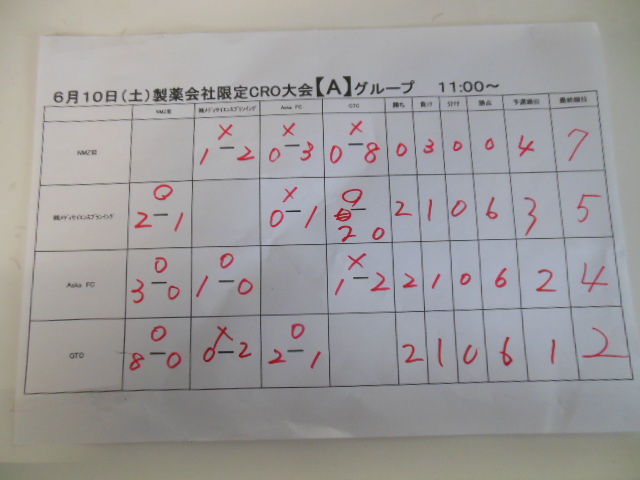 6月10日(土)製薬会社限定CRO大会【A】グループ 11:00～
NMZ管 ㈱メディサイエンスプランニング Aska FC GTO 勝ち 負け 分け 勝点 予選順位 最終順位
NMZ管 × 1-2 × 0-3 × 0-8 0 3 0 0 4 7
㈱メディサイエンスプランニング ○ 2-1 × 0-1 ○ 2-0 2 1 0 6 3 5
Aska FC ○ 3-0 ○ 1-0 × 1-2 2 1 0 6 2 4
GTO ○ 8-0 × 0-2 ○ 2-1 2 1 0 6 1 2